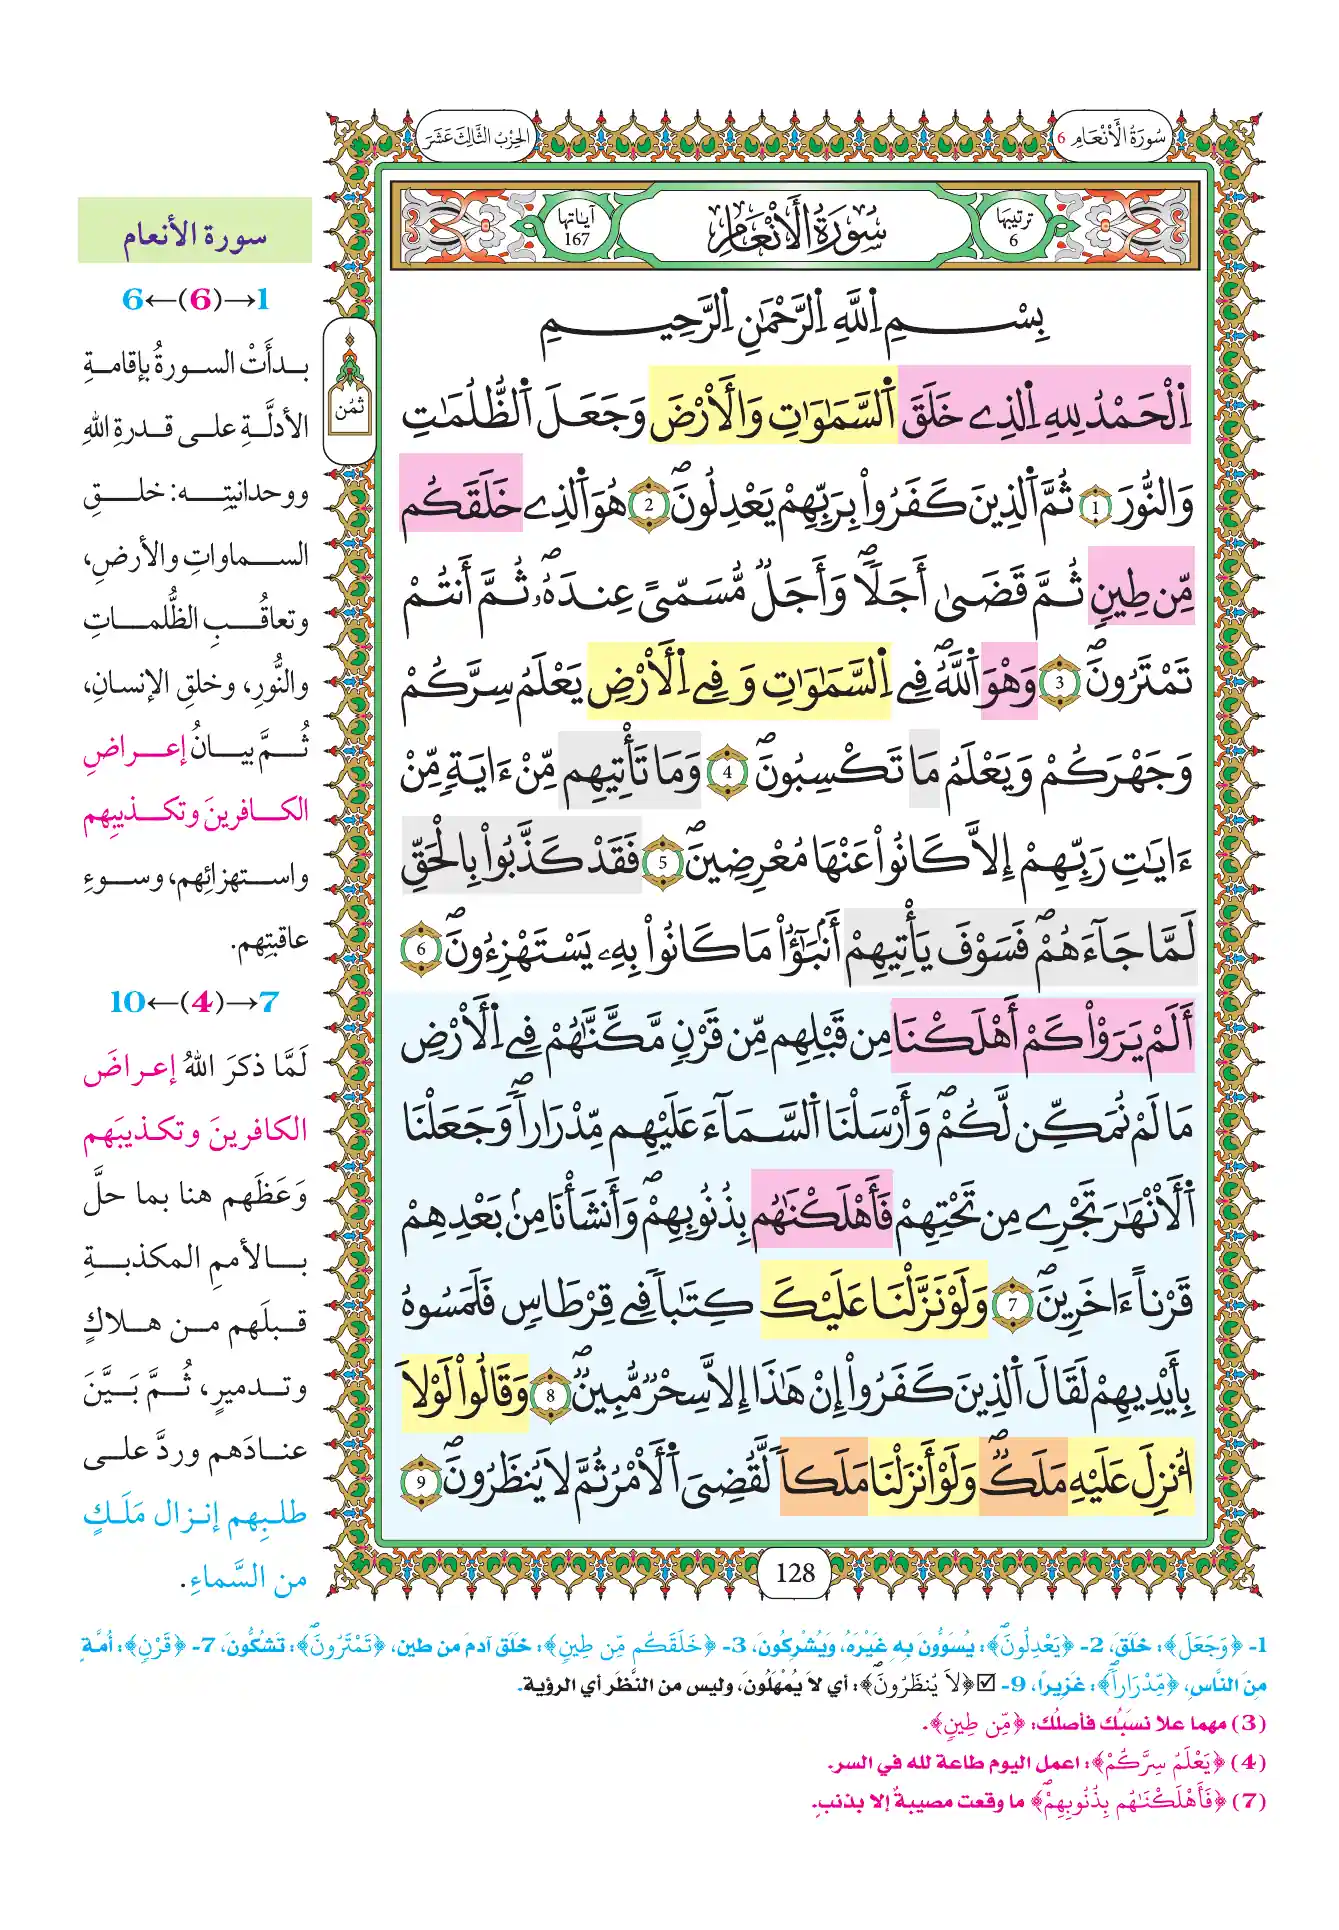 سُورَةُ الأَنْعَامِ 6
الحِزْبُ الثَّالِثَ عَشَرَ
ترتيبها 6
سُورَةُ الأَنْعَامِ
آياتها 167
بِسْمِ اِ۬للَّهِ اِ۬لرَّحْمَٰنِ اِ۬لرَّحِيمِ
اِ۬لْحَمْدُ لِلهِ اِ۬لذِے خَلَقَ اَ۬لسَّمَٰوَٰتِ وَالَارْضَ وَجَعَلَ اَ۬لظُّلُمَٰتِ
وَالنُّورَ 1 ثُمَّ اَ۬لذِينَ كَفَرُواْ بِرَبِّهِمْ يَعْدِلُونَۖ 2 هُوَ اَ۬لذِے خَلَقَكُم
مِّن طِينٖ ثُمَّ قَضَىٰٓ أَجَلاٗۖ وَأَجَلٞ مُّسَمّىً عِندَهُۥۖ ثُمَّ أَنتُمْ
تَمْتَرُونَۖ 3 وَهُوَ اَ۬للَّهُ فِے اِ۬لسَّمَٰوَٰتِ وَفِے اِ۬لَارْضِ يَعْلَمُ سِرَّكُمْ
وَجَهْرَكُمْ وَيَعْلَمُ مَا تَكْسِبُونَۖ 4 وَمَا تَأْتِيهِم مِّنْ ءَايَةٖ مِّنْ
ءَايَٰتِ رَبِّهِمْ إِلَّا كَانُواْ عَنْهَا مُعْرِضِينَۖ 5 فَقَدْ كَذَّبُواْ بِالْحَقِّ
لَمَّا جَآءَهُمْۖ فَسَوْفَ يَأْتِيهِمْ أَنۢبَٰٓؤُاْ مَا كَانُواْ بِهِۦ يَسْتَهْزِءُونَۖ 6
أَلَمْ يَرَوْاْ كَمْ أَهْلَكْنَا مِن قَبْلِهِم مِّن قَرْنٖ مَّكَّنَّٰهُمْ فِے اِ۬لَارْضِ
مَا لَمْ نُمَكِّن لَّكُمْۖ وَأَرْسَلْنَا اَ۬لسَّمَآءَ عَلَيْهِم مِّدْرَاراٗۖ وَجَعَلْنَا
اَ۬لَانْهَٰرَ تَجْرِے مِن تَحْتِهِمْ فَأَهْلَكْنَٰهُم بِذُنُوبِهِمْۖ وَأَنشَأْنَا مِنۢ بَعْدِهِمْ
قَرْناً ءَاخَرِينَۖ 7 وَلَوْ نَزَّلْنَا عَلَيْكَ كِتَٰباٗ فِے قِرْطَاسٖ فَلَمَسُوهُ
بِأَيْدِيهِمْ لَقَالَ اَ۬لذِينَ كَفَرُوٓاْ إِنْ هَٰذَآ إِلَّا سِحْرٞ مُّبِينٞۖ 8 وَقَالُواْ لَوْلَآ
أُنزِلَ عَلَيْهِ مَلَكٞۖ وَلَوَ اَنزَلْنَا مَلَكاٗ لَّقُضِيَ اَ۬لَامْرُ ثُمَّ لَا يُنظَرُونَۖ 9
128
ثُمُن
سورة الأنعام
1→(6)←6
بدأَتْ السورةُ بإقامةِ
الأدلَّةِ على قدرةِ اللهِ
ووحدانيتِه: خلقِ
السماواتِ والأرضِ،
وتعاقُبِ الظُّلماتِ
والنُّورِ، وخلقِ الإنسانِ،
ثُمَّ بيانُ إعراضِ
الكافرينَ وتكذيبِهم
واستهزائِهم، وسوءِ
عاقبتِهم.
7→(4)←10
لَمَّا ذكرَ اللهُ إعراضَ
الكافرينَ وتكذيبَهم
وَعَظَهم هنا بما حلَّ
بالأممِ المكذبةِ
قبلَهم من هلاكٍ
وتدميرٍ، ثُمَّ بَيَّنَ
عنادَهم وردَّ على
طلبِهم إنزال مَلَكٍ
من السَّماءِ.
1- ﴿وَجَعَلَ﴾: خَلَقَ، 2- ﴿يَعْدِلُونَۖ﴾: يُسَوُّونَ بِهِ غَيْرَهُ، وَيُشْرِكُونَ، 3- ﴿خَلَقَكُم مِّن طِينٖ﴾: خَلَقَ آدمَ من طين، ﴿تَمْتَرُونَۖ﴾: تَشُكُّونَ، 7- ﴿قَرْنٖ﴾: أُمَّةٍ
مِنَ النَّاسِ، ﴿مِّدْرَاراٗۖ﴾: غَزِيرًا، 9- ☑﴿لَا يُنظَرُونَۖ﴾: أي لاَ يُمْهَلُونَ، وليس من النَّظَر أي الرؤية.
(3) مهما علا نسَبُك فأصلُك: ﴿مِّن طِينٖ﴾.
(4) ﴿يَعْلَمُ سِرَّكُمْ﴾: اعمل اليوم طاعة لله في السر.
(7) ﴿فَأَهْلَكْنَٰهُم بِذُنُوبِهِمْۖ﴾ ما وقعت مصيبةٌ إلا بذنبٍ.